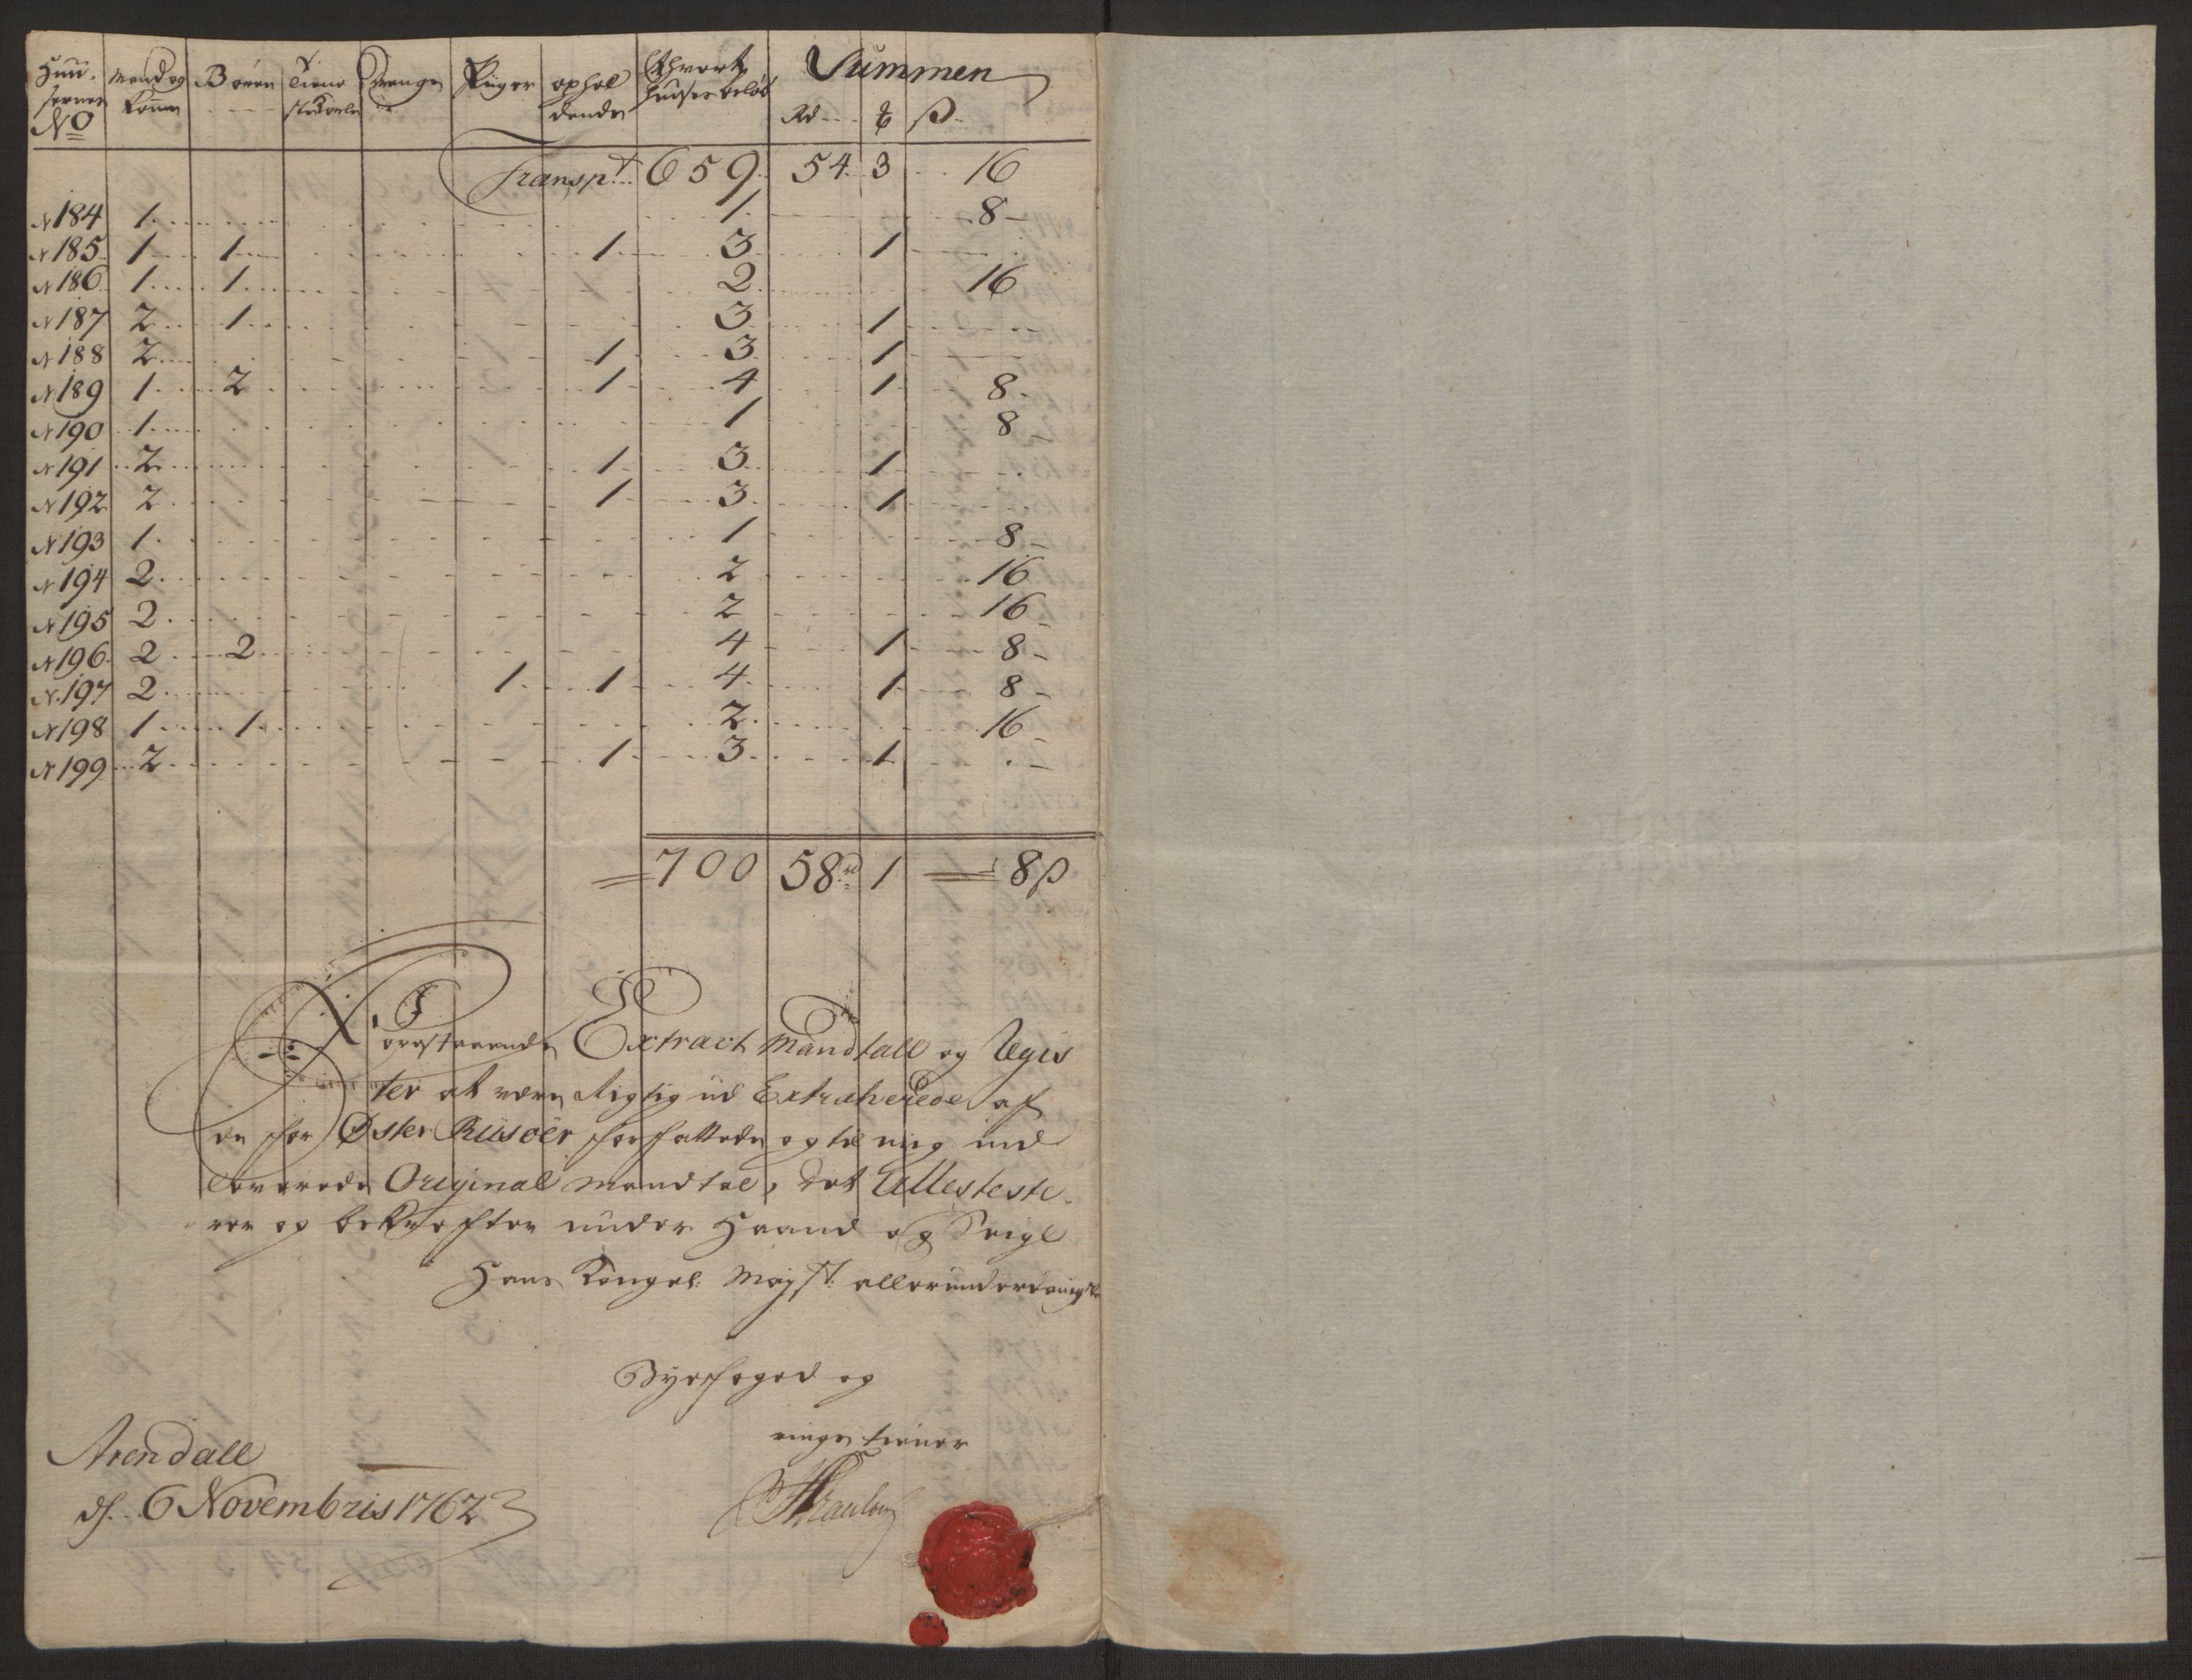 Huu- sernes No | Mand og Konner | Børn | Tiene ste Karle | Drenge | Piger | ophol dende | Ethvert Huuses beløb | Summen Rd | ₰ | ß
Transpt 659 54 3 16
N 184 1 1 8
N 185 1 1 1 3 1
N 186 1 1 2 16
N 187 2 1 3 1
N 188 2 1 3 1
N 189 1 2 1 4 1 8
N 190 1 1 8
N 191 2 1 3 1
N 192 2 1 3 1
N 193 1 1 8
N 194 2 2 16
N 195 2 2 16
N 196 2 2 4 1 8
N 197 2 1 1 4 1 8
N 198 1 1 2 16
N 199 2 1 3 1
700 58 rd 1 8 ß
Forestaaende Extract Mandtall og Regis
ter at være Rigtig ud Extraherede af
de for Øster Riisøer forfattede og til mig ind
leverede Original Mandtal, det Attesteste-
rer og bekræfter under Haand og Seigl
Hans Kongel: Mayst: allerunderdanigste
Byefoged og
ringe tiener
Arendall
d. 6 Novembris 1762